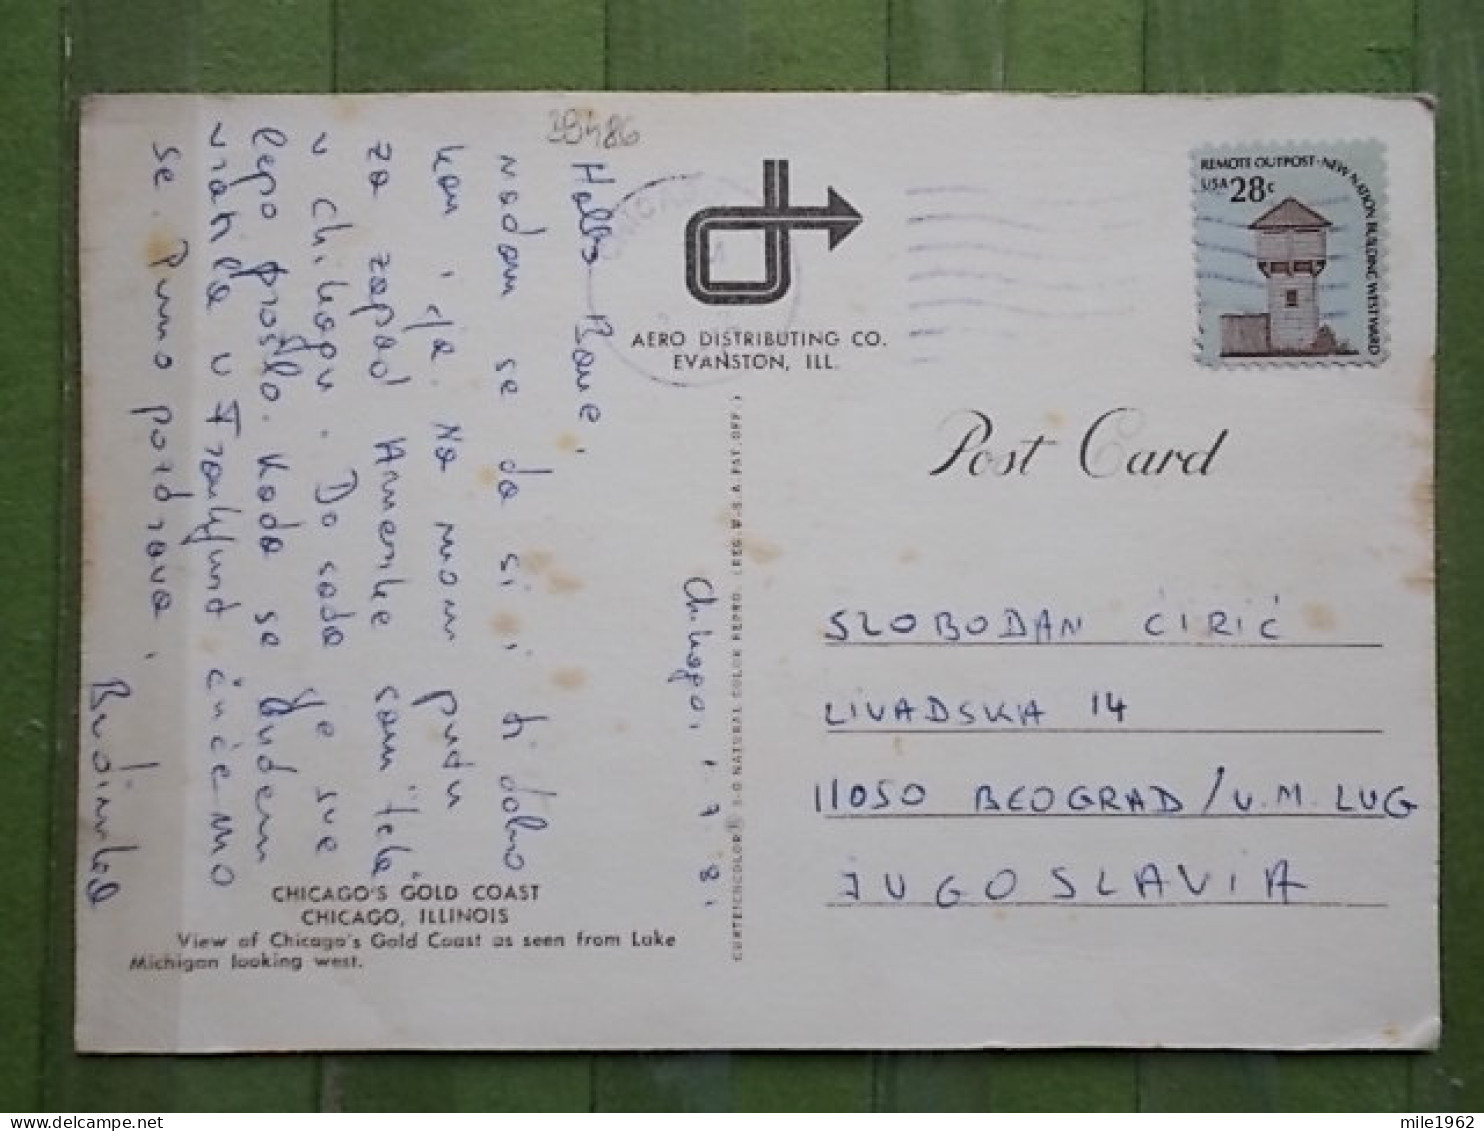 39486
Hallo Bane,
nadam se da si i ti dobro
kao i ja. Na mom putu
za zapad Amerike sam "tek"
u Chikagu. Do sada je sve
lepo prošlo. Kada se budem
vratila u Frankfurt čućemo
se. Puno pozdrava,
Budimka
Chikago, 1.7.81
AERO DISTRIBUTING CO.
EVANSTON, ILL.
CHICAGO'S GOLD COAST
CHICAGO, ILLINOIS
View of Chicago's Gold Coast as seen from Lake
Michigan looking west.
CURTEICHCOLOR® 3-D NATURAL COLOR REPRO. (REG. U.S.A. PAT. OFF.)
REMOTE OUTPOST·NEW NATION BUILDING WESTWARD
USA 28c
Post Card
SLOBODAN ĆIRIĆ
LIVADSKA 14
11050 BEOGRAD/U.M. LUG
JUGOSLAVIA
mile1962